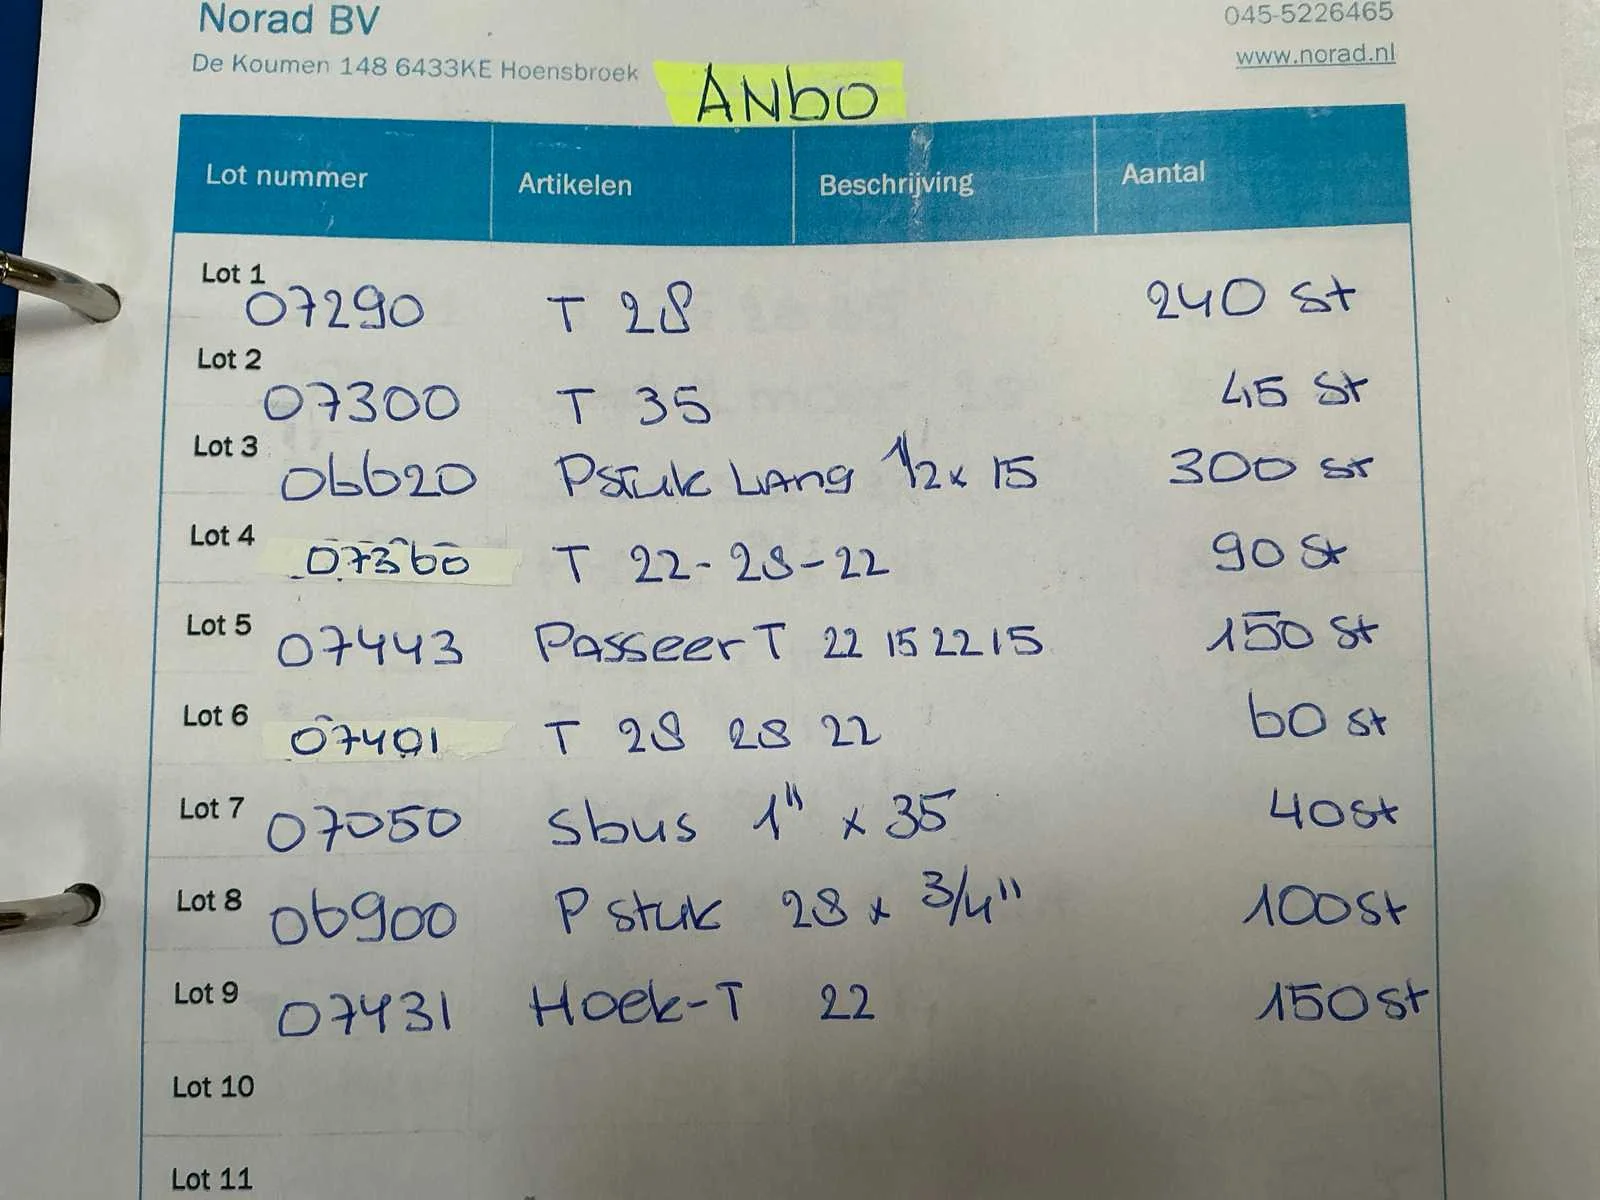 Norad BV
045-5226465
De Koumen 148 6433KE Hoensbroek
www.norad.nl
ANbO
Lot nummer Artikelen Beschrijving Aantal
Lot 1 07290 T 28 240 St
Lot 2 07300 T 35 45 St
Lot 3 06620 Pstuk Lang 1/2 x 15 300 st
Lot 4 07360 T 22-28-22 90 St
Lot 5 07443 Passeer T 22 15 22 15 150 St
Lot 6 07401 T 28 28 22 60 st
Lot 7 07050 Sbus 1" x 35 40 st
Lot 8 06900 P stuk 28 x 3/4" 100 St
Lot 9 07431 Hoek-T 22 150 st
Lot 10
Lot 11